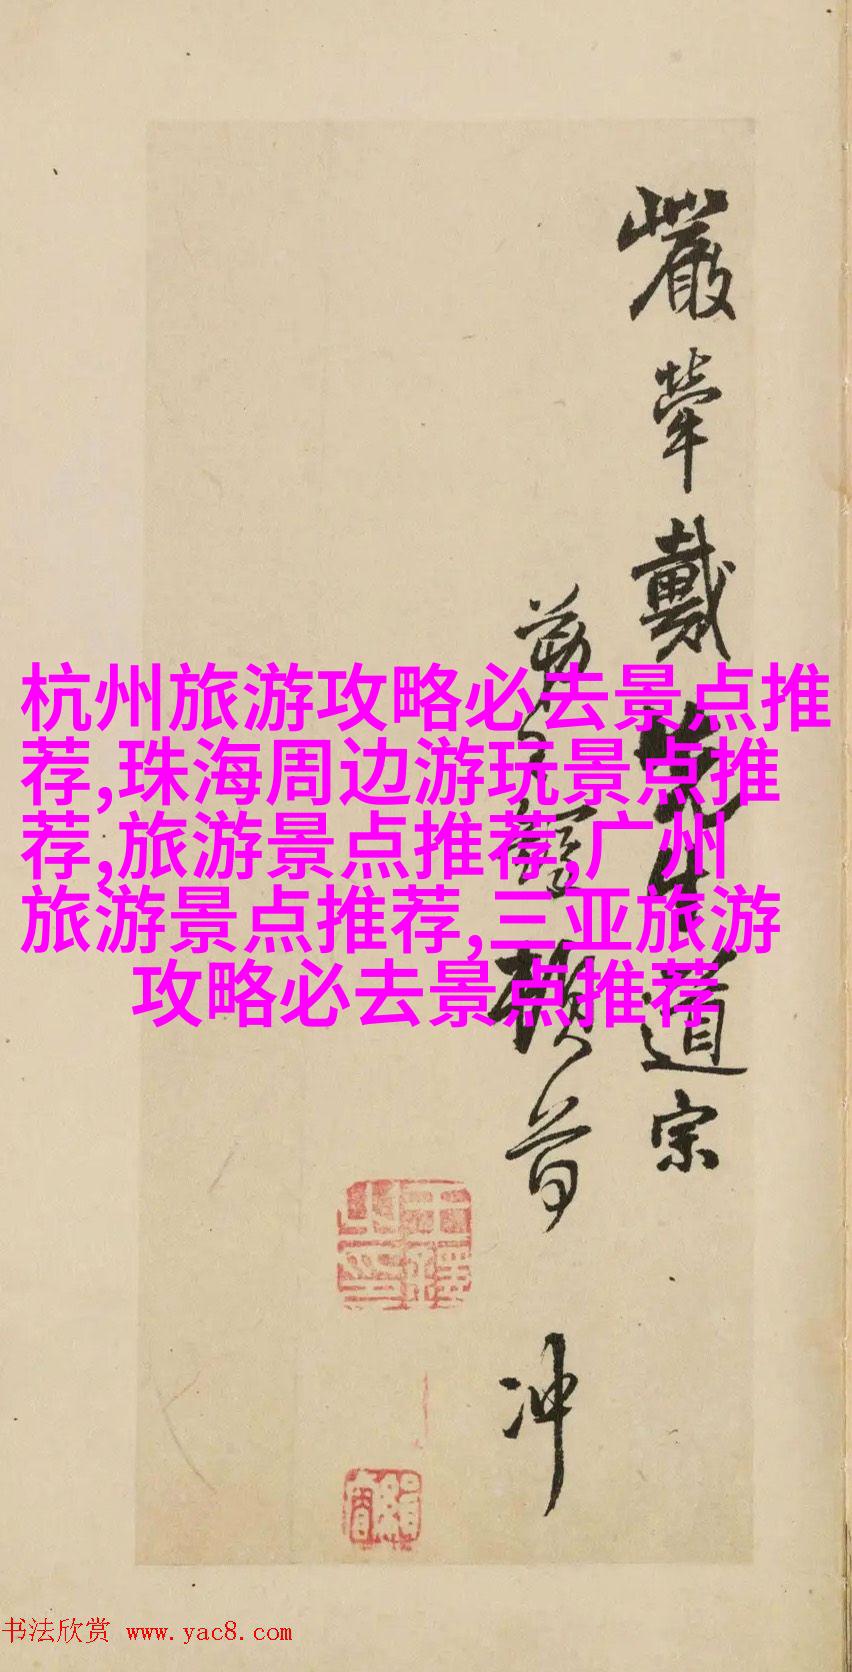 杭州旅游攻略必去景点推
荐,珠海周边游玩景点推
荐,旅游景点推荐,广州
旅游景点推荐,三亚旅游
攻略必去景点推荐
嚴 戴先生道宗
頓首
冲
书法欣赏 www.yac8.com